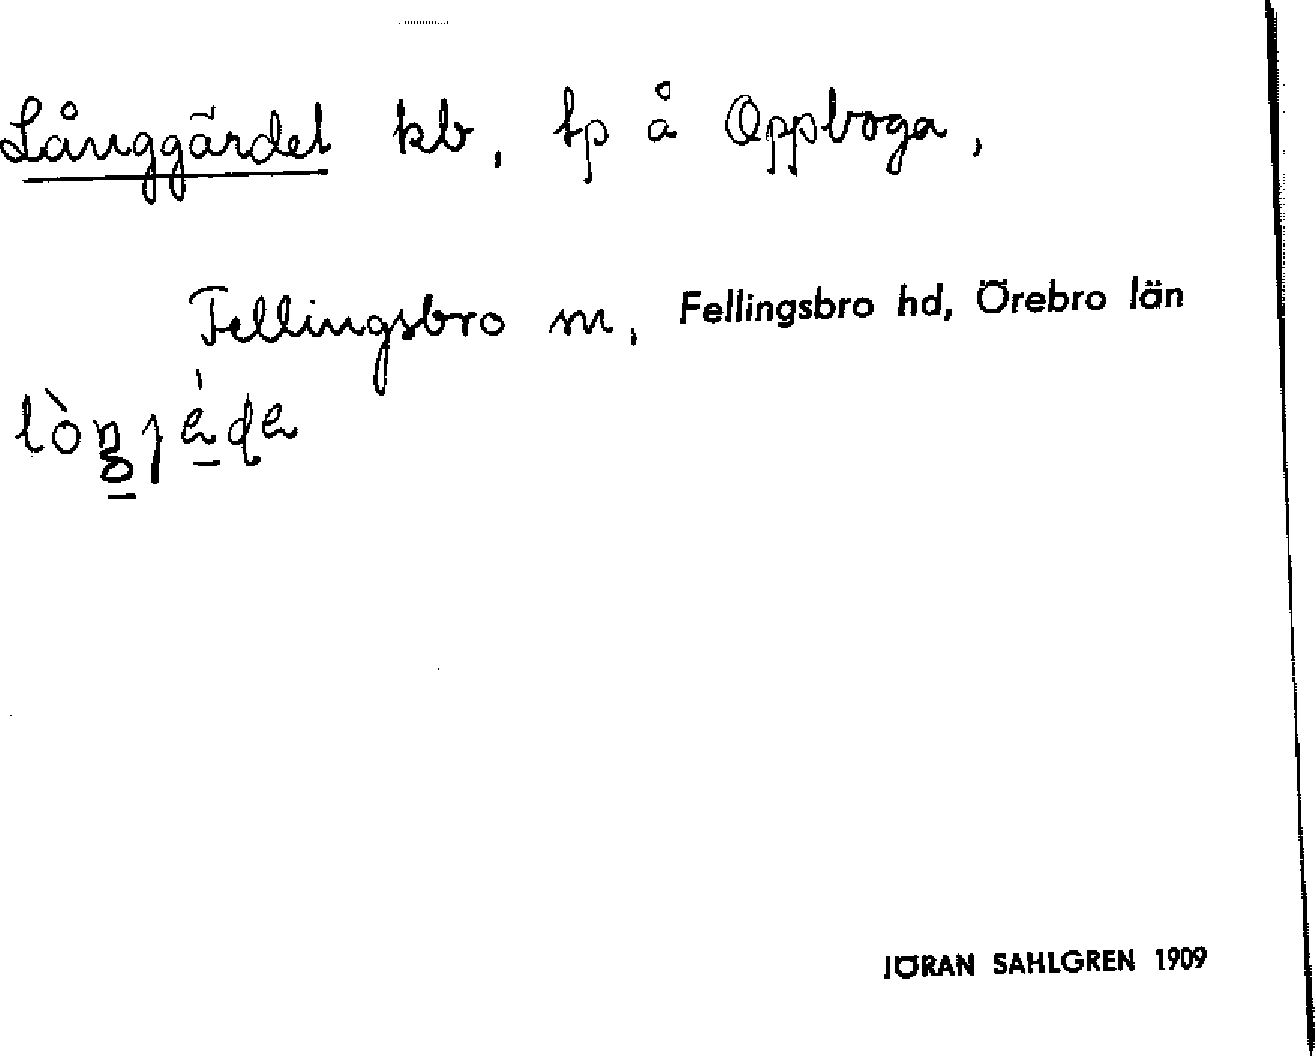 Långgärdet kb, tp å Oppboga,
Fellingsbro sn, Fellingsbro hd, Örebro län
JÖRAN SAHLGREN 1909